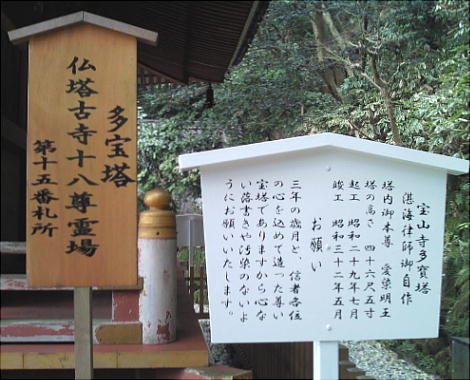 多宝塔
仏塔古寺十八尊霊場
第十五番札所
宝山寺多寶塔
湛海律師御自作
塔内御本尊 愛染明王
塔の高さ 四十六尺五寸
起工 昭和二十九年七月
竣工 昭和三十二年五月
お願い
三年の歳月と、信者各位
の心を込めて造った尊い
宝塔でありますから心な
い落書きや汚染のないよ
うにお願いいたします。